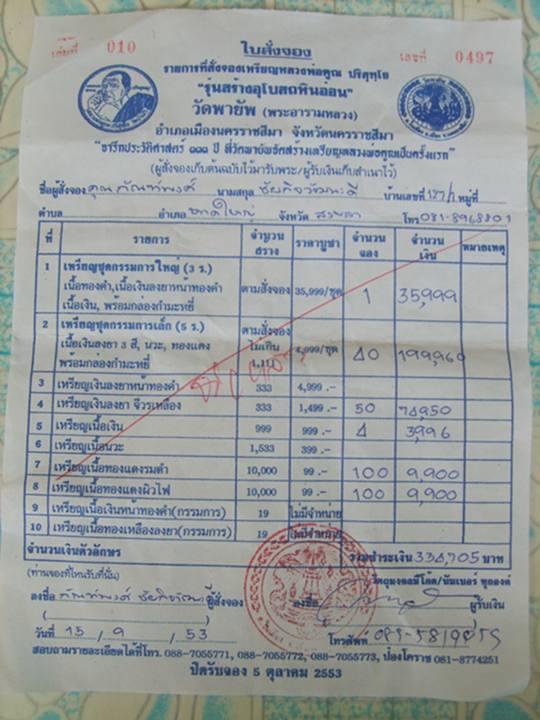 เล่มที่ 010 เลขที่ 0497
ใบสั่งจอง
รายการที่สั่งจองเหรียญหลวงพ่อคูณ ปริสุทฺโธ
"รุ่นสร้างอุโบสถหินอ่อน"
วัดพายัพ (พระอารามหลวง)
อำเภอเมืองนครราชสีมา จังหวัดนครราชสีมา
"จารึกประวัติศาสตร์ ๑๑๑ ปี ที่วัดพายัพจัดสร้างเหรียญหลวงพ่อคูณเป็นครั้งแรก"
(ผู้สั่งจองเก็บต้นฉบับไว้มารับพระ/ผู้รับเงินเก็บสำเนาไว้)
ชื่อผู้สั่งจอง คุณ นามสกุล บ้านเลขที่ หมู่ที่
ตำบล อำเภอ หาดใหญ่ จังหวัด สงขลา โทร 081-8968801
ที่ รายการ จำนวนสร้าง ราคาบูชา จำนวนจอง จำนวนเงิน หมายเหตุ
1 เหรียญชุดกรรมการใหญ่ (3 ร.)
เนื้อทองคำ,เนื้อเงินลงยาหน้าทองคำ ตามสั่งจอง 35,999/ชุด 1 35,999
เนื้อเงิน, พร้อมกล่องกำมะหยี่
2 เหรียญชุดกรรมการเล็ก (5 ร.) ตามสั่งจอง
เนื้อเงินลงยา 3 สี, นวะ, ทองแดง ไม่เกิน 4,999/ชุด 40 199,960
พร้อมกล่องกำมะหยี่ 1,111
3 เหรียญเงินลงยาหน้าทองคำ 333 4,999 .-
4 เหรียญเงินลงยา จีวรเหลือง 333 1,499 .- 50 74,950
5 เหรียญเนื้อเงิน 999 999 .- 4 3,996
6 เหรียญเนื้อนวะ 1,533 399 .-
7 เหรียญเนื้อทองแดงรมดำ 10,000 99 .- 100 9,900
8 เหรียญเนื้อทองแดงผิวไฟ 10,000 99 .- 100 9,900
9 เหรียญเนื้อเงินหน้าทองคำ(กรรมการ) 19 ไม่มีจำหน่าย
10 เหรียญเนื้อทองเหลืองลงยา(กรรมการ) 19 ไม่มีจำหน่าย
จำนวนเงินตัวอักษร รวมชำระเงิน 334,705 บาท
(ท่านจองที่ไหนรับที่นั่น)
ลงชื่อ ผู้สั่งจอง ลงชื่อ ผู้รับเงิน
( )
วันที่ 15 / 9 / 53 โทรศัพท์
สอบถามรายละเอียดได้ที่โทร. 088-7055771, 088-7055772, 088-7055773, ป๋องโคราช 081-8774251
ปิดรับจอง 5 ตุลาคม 2553